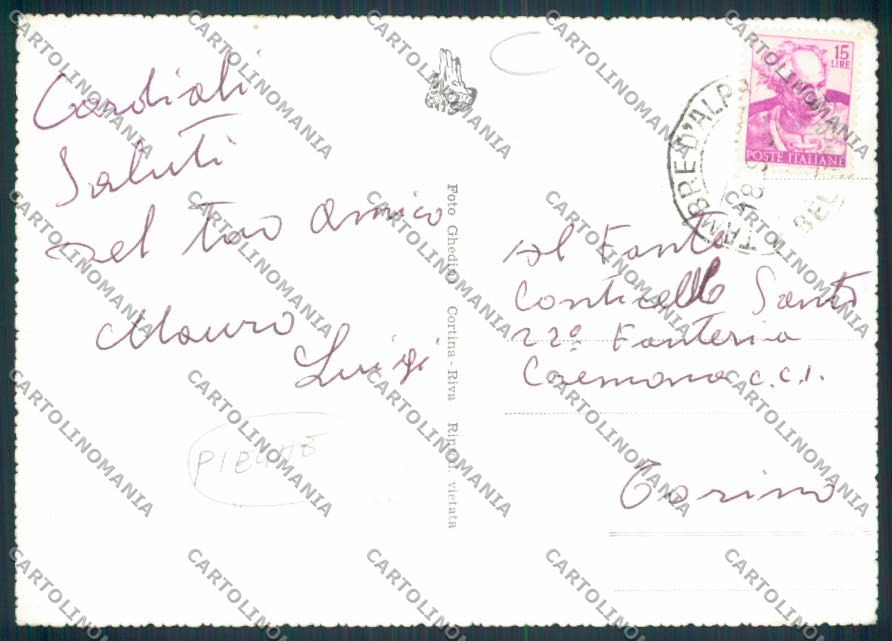 Cordiali
Saluti
Del tuo Amico
Mauro
Luigi
PIEGHE
Foto Ghedina Cortina - Riva Riprod. vietata
15
LIRE
POSTE ITALIANE
TAMBRE D'ALP
BEL
Al Fante
Conticello Santo
22º Fanteria
Cremona c.c.1.
Torino
CARTOLINOMANIA